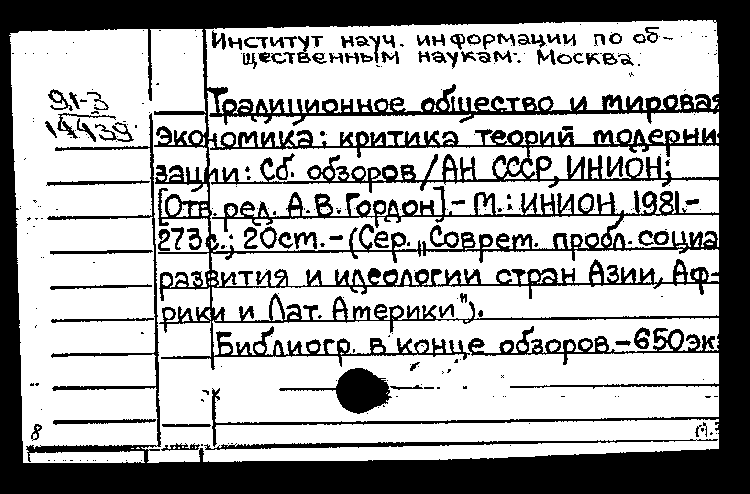 Институт науч. информации по об-
щественным наукам. Москва.
91-3
14439
Традиционное общество и мировая
экономика: критика теорий модерни-
зации: Сб. обзоров / АН СССР, ИНИОН;
[Отв. ред. А.В. Гордон].- М.: ИНИОН, 1981.-
273с.; 20ст. - (Сер. „Соврет. пробл. социа
развития и идеологии стран Азии, Аф-
рики и Лат. Америки").
Библиогр. в конце обзоров.-650экз
8
м.